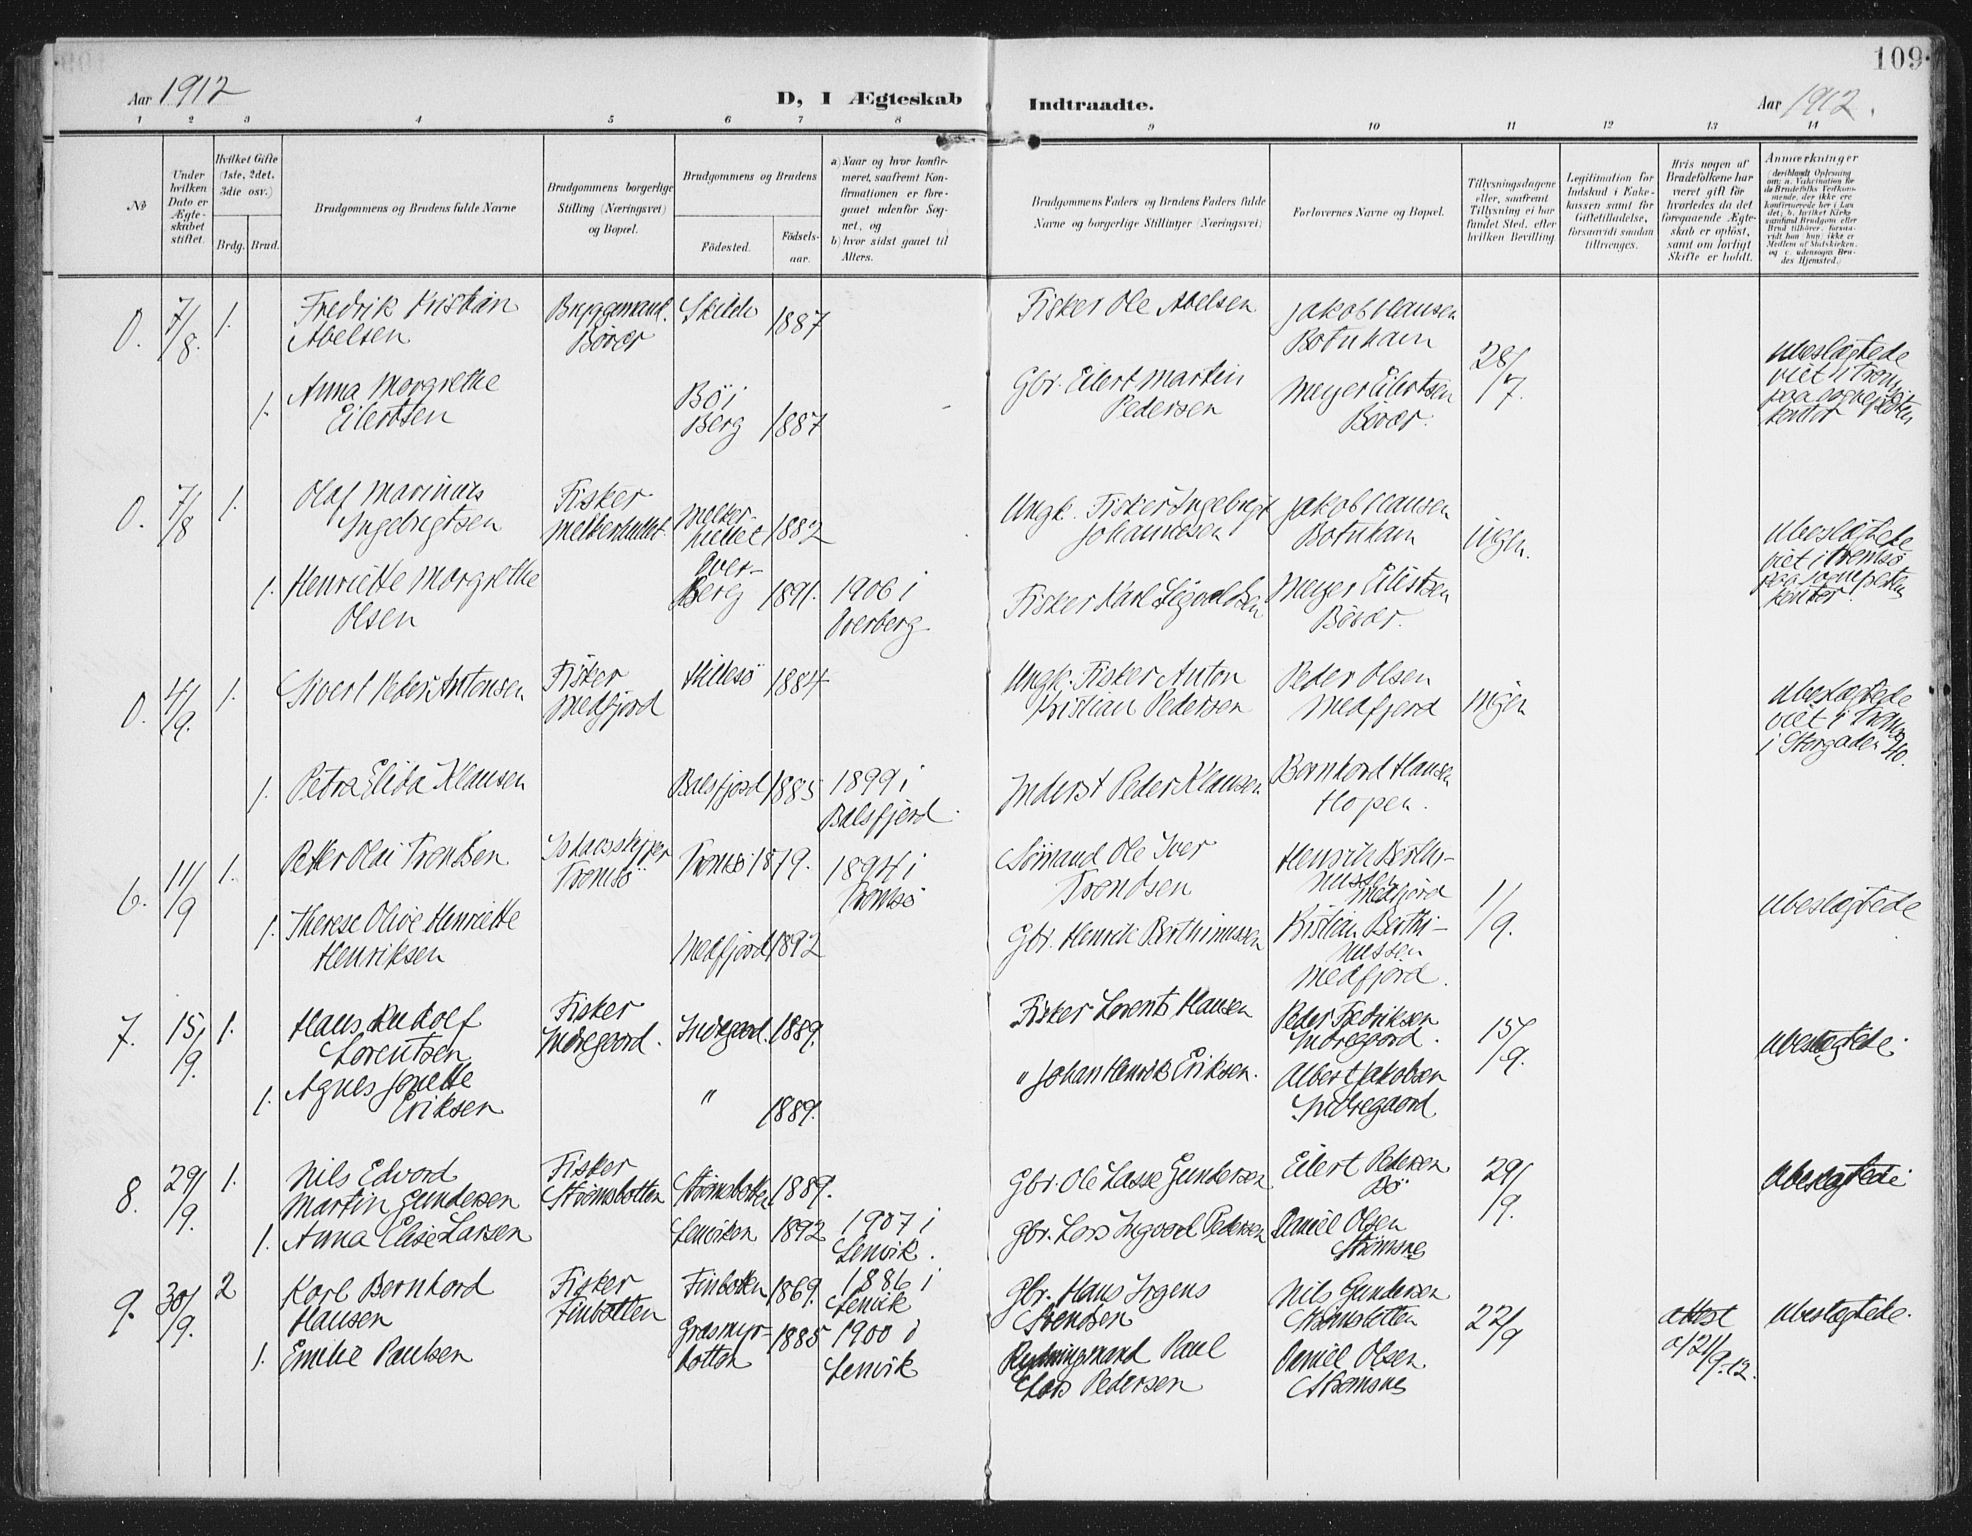 109
Aar 1912
D, I Ægteskab
Indtraadte.
Aar 1912.
1 2 3 4 5 6 7 8
9 10 11 12 13 14
No
Under hvilken Dato er Ægteskabet stiftet.
Hvilket Gifte (1ste, 2det, 3die osv.)
Brdg. Brud.
Brudgommens og Brudens fulde Navne
Brudgommens borgerlige Stilling (Næringsvei) og Bopæl.
Brudgommens og Brudens
Fødested.
Fødselsaar.
a) Naar og hvor konfirmeret, saafremt Konfirmationen er foregaaet udenfor Sognet, og
b) hvor sidst gaaet til Alters.
Brudgommens Faders og Brudens Faders fulde Navne og borgerlige Stillinger (Næringsvei)
Forlovernes Navne og Bopæl.
Tillysningsdagene eller, saafremt Tillysning ei har fundet Sted, efter hvilken Bevilling.
Legitimation for Indskud i Enkekassen samt for Giftetilladelse, forsaavidt saadan tiltrænges.
Hvis nogen af Brudefolkene har været gift før hvorledes da det foregaaende Ægteskab er opløst, samt om lovligt Skifte er holdt.
Anmerkninger
0. 7/8. 1. Fredrik Kristian Abelsen
Bøvær
1887
Fisker Ole Abelsen
Jakob Hansen Botnham
28/7.
ubeslægtede
1. Anna Margrethe Eilertsen
Bøi Berg 1887
Gbr. Eilert Martin Pedersen
Meyer Eilertsen Bøvær.
0. 7/8 1.
Ingebrigtsen
Fisker
1882
Ungk. Fisker Ingebrigt Johannesen
Jakob Hansen Botnham
ingen.
ubeslægtede
viet i Tromsø
1. Henriette Margrethe Olsen
Øverberg 1891.
1906 i Øverberg
Meyer Eilertsen Bøvær.
0. 4/9. 1. Sivert Peder Antonsen
Fisker Medfjord
Hillesø 1884
Ungk. Fisker Anton Kristian Pedersen
Peder Olsen Medfjord
ingen
ubeslægtede
i Storgaden 40.
1. Petra Klausen
Balsfjord 1885
1899 i Balsfjord.
Inderst Peder Klausen
Bernhard Hansen Hopen.
6. 11/9 1. Petter Olai Trondsen
Ishavsskipper Tromsø
Tromsø 1879.
1894 i Tromsø
Sømand Ole Iver Trondsen
Henrik Berthinussen Medfjord
1/9.
ubeslægtede
1. Therese Olive Henriette Henriksen
Medfjord 1892
Gbr. Henrik Berthinussen
Kristian Berthinussen Medfjord.
7. 15/9. 1. Hans Rudolf Lorentsen
Fisker Indregaard.
Indregaard. 1889.
Fisker Lorents Hansen
Peder Fredriksen Indregaard.
15/9.
ubeslegtede.
1. Agnes Jonette Eriksen
" 1889.
" Johan Henrik Eriksen.
Albert Jakobsen Indregaard
8. 29/9. 1. Nils Edvard Martin Gundersen
Fisker Strømsbotten
Strømsbotten 1889.
Gbr. Ole Lasse Gundersen
Eilert Pedersen Bø
29/9.
ubeslegtede
1. Anna Elise Larsen
Lenviken 1892
1907 i Lenvik.
Gbr. Lars Ingvard Pedersen
Daniel Olsen Strømsnes
9. 30/9. 2 Karl Bernhard Hansen
Fisker Finbotten
Finbotten 1869.
1886 i Lenvik
Gbr. Hans Jrgens Svendsen
Nils Gundersen Strømsbotten
22/9
attest
ubeslegtede.
1. Emilie Paulsen
Græsmyrbotten 1885
1900 i Lenvik
Rydningsmand Paul Lars Pedersen
Daniel Olsen Strømsnes